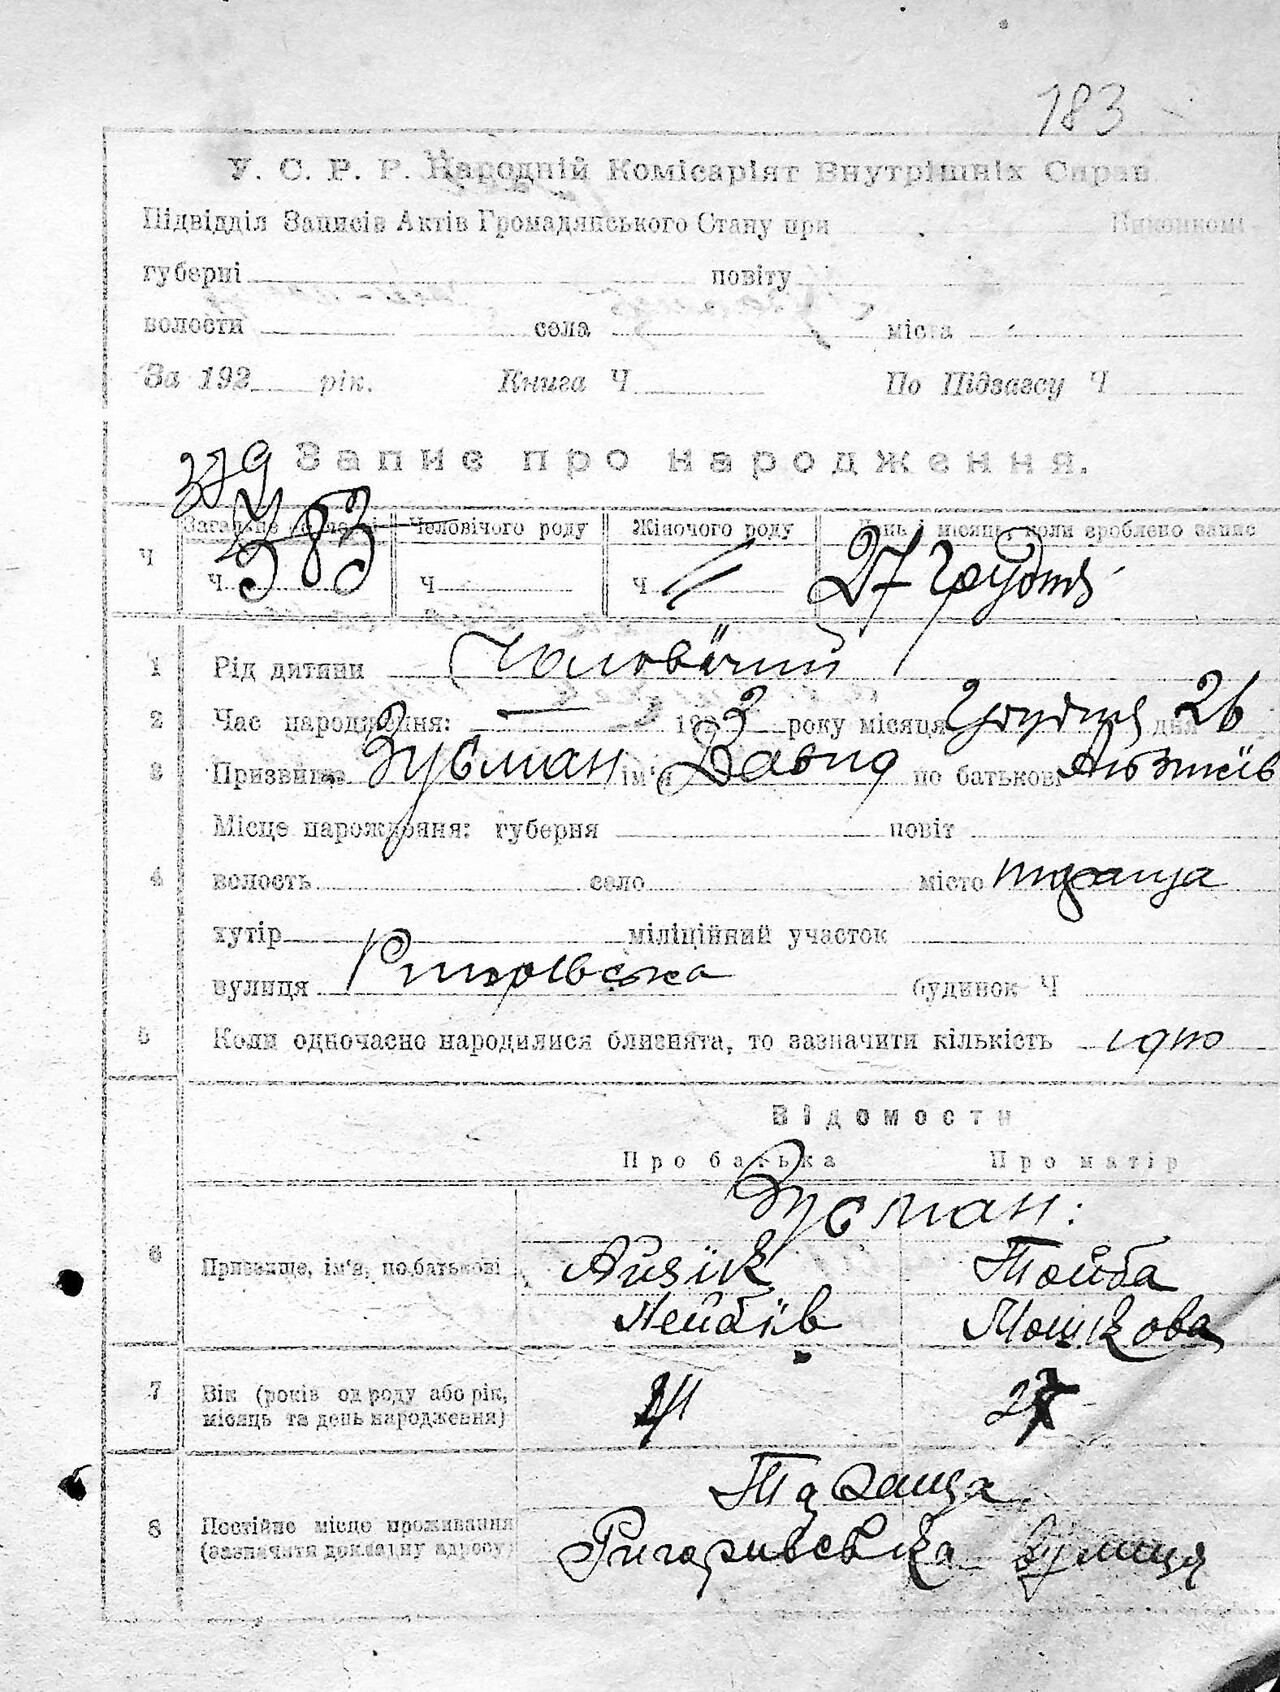 183
У. С. Р. Р. Народній Комісаріят Внутрішніх Справ
Підвідділ Записів Актів Громадянського Стану при Виконкомі
губерні повіту
волости села міста
За 192 рік. Книга Ч По Підзагсу Ч
379 Запис про народження.
Загальне Человічого роду Жіночого роду День і місяць, коли зроблено запис
Ч Ч 383 Ч Ч 27 Грудня
1 Рід дитини Чоловічий
2 Час народження: 1923 року місяця Грудня дня 26
3 Призвище Зусман ім'я Давид по батькові
Місце народження: губерня повіт
4 волость село місто Тараща
хутір міліційний участок
вулиця будинок Ч
5 Коли одночасно народилися близнята, то зазначити кількість одно
Відомости
Про батька Про матір
Зусман:
6 Призвище, ім'я, по батькові Айзік Тойба
Лейбів Мошкова
7 Вік (років од роду або рік, місяць та день народження) 27
Тараща
8 Постійне місце проживання
(зазначити докладну адресу) вулиця